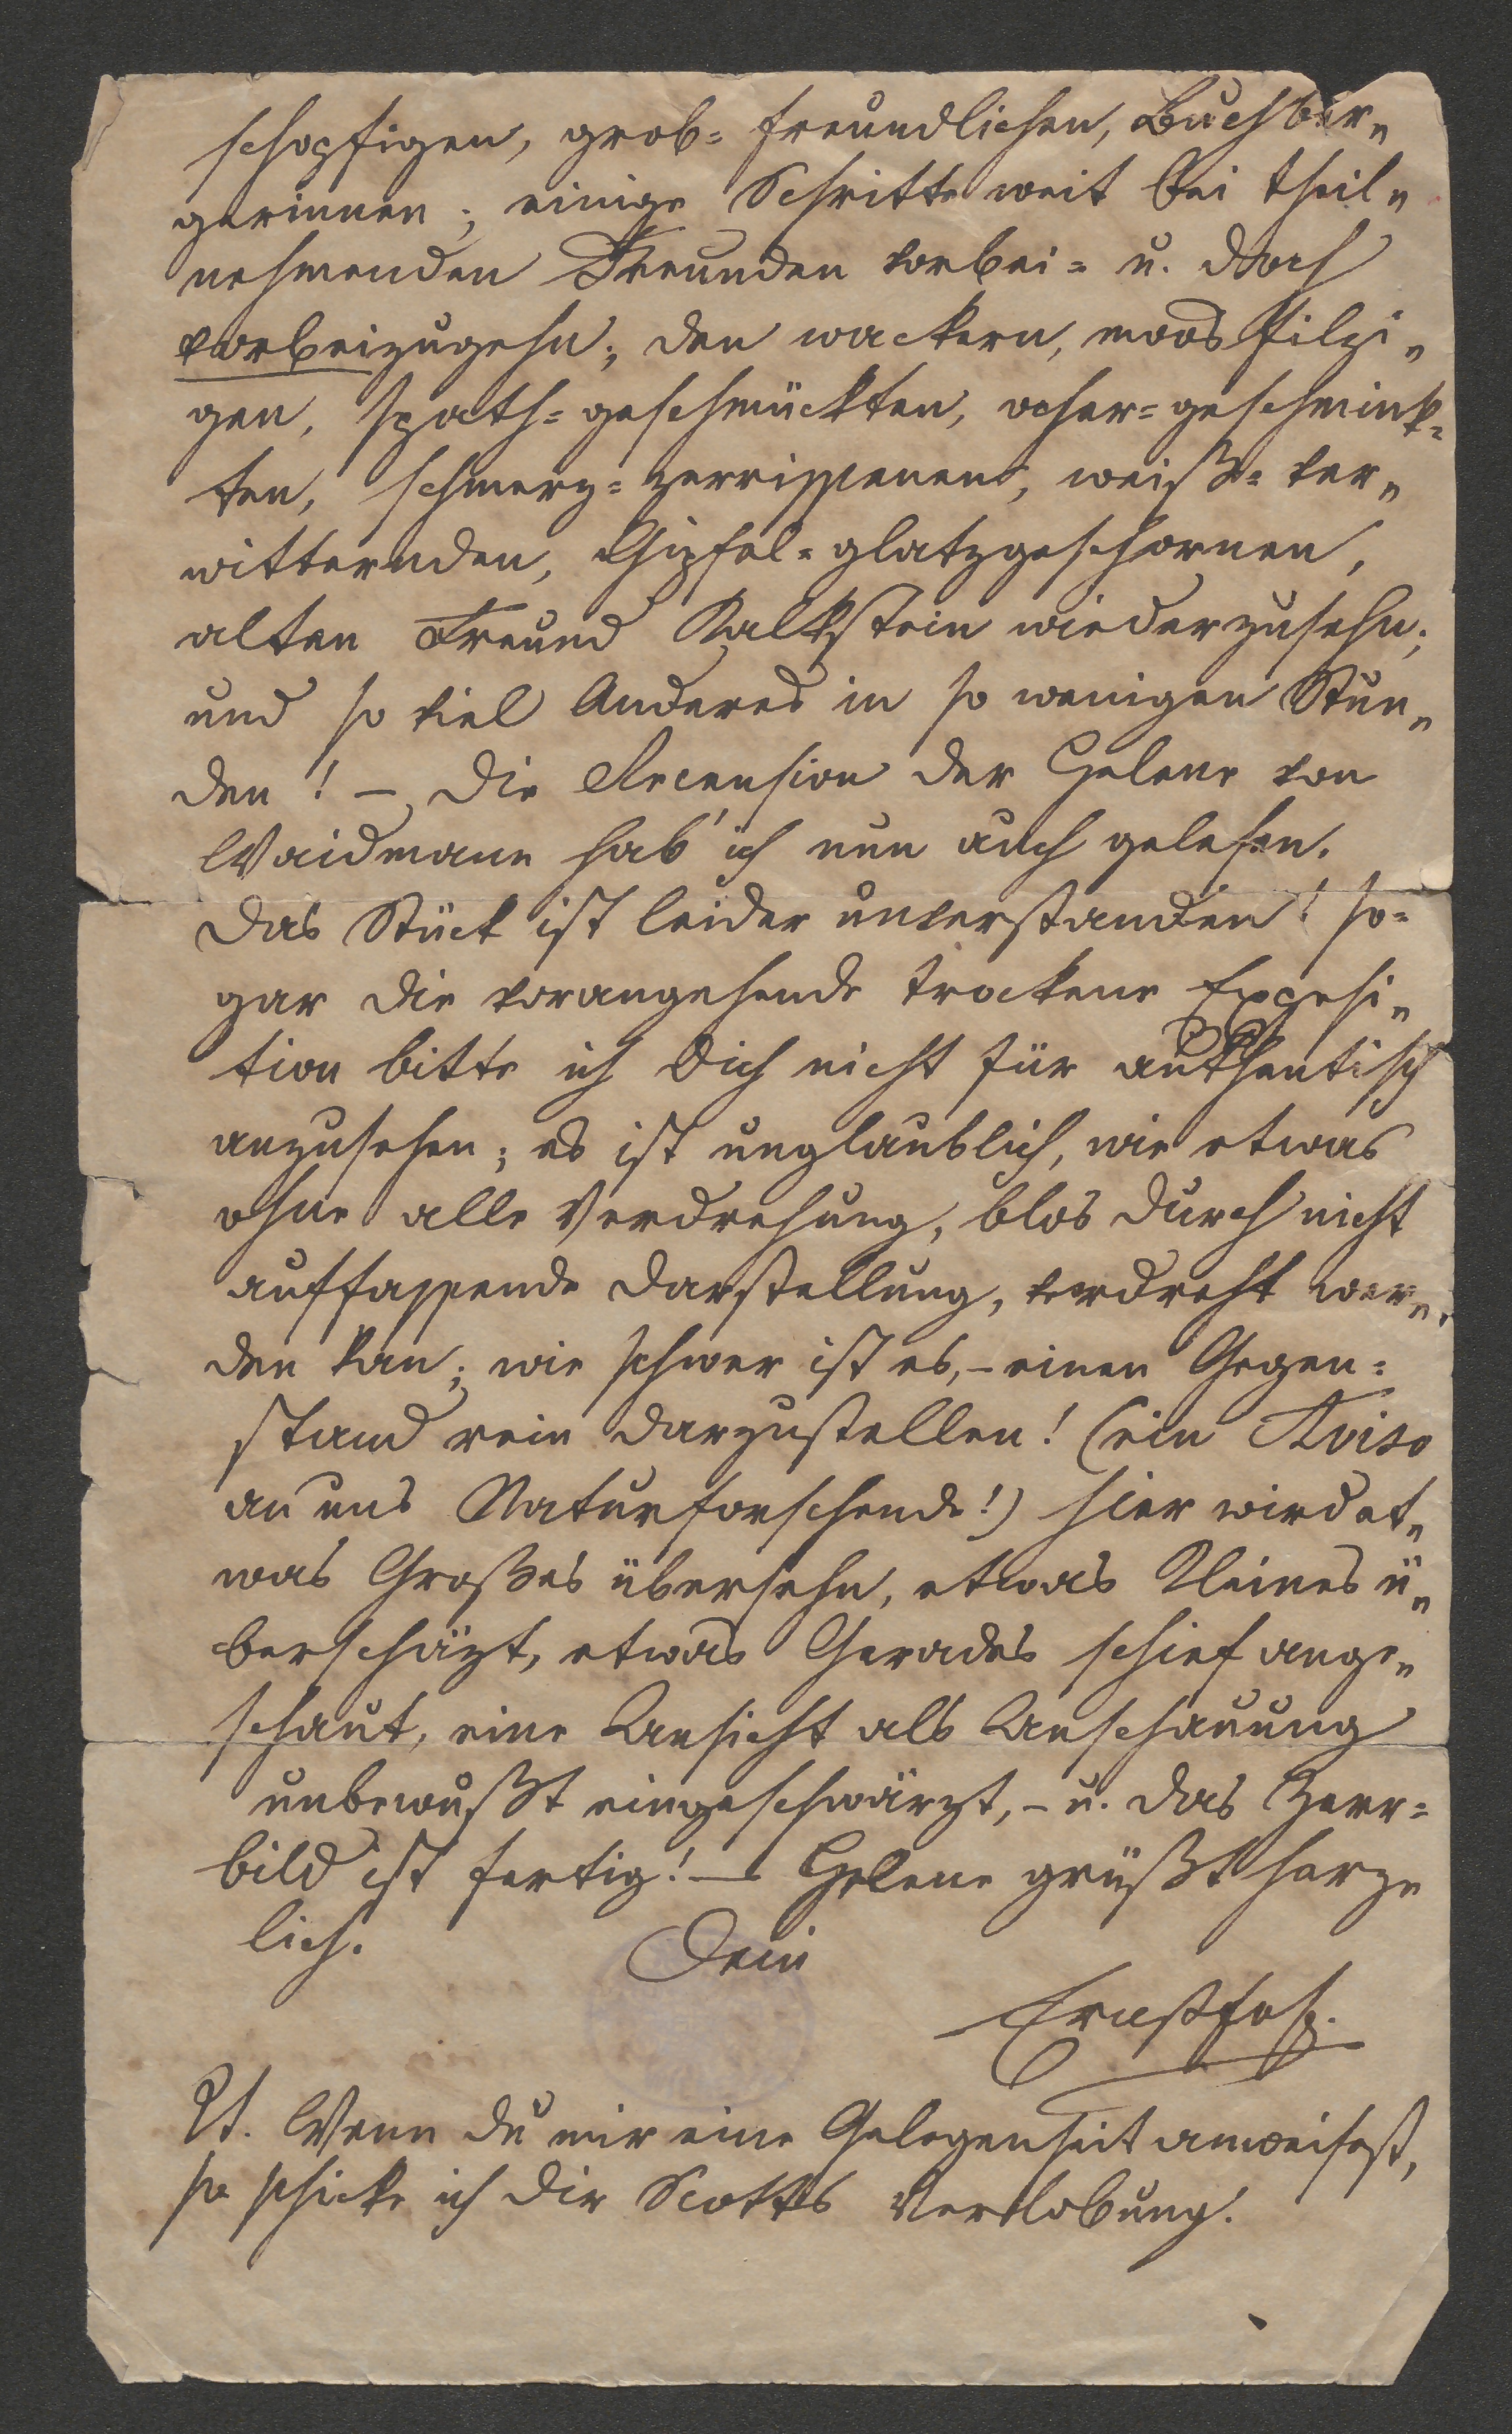 schopfigen, grob= freundlichen, Buchber„
gerinnen; einige Schritte weit bei theil„
nehmenden Freunden vorbei= u. doch
vorbeizugehn; den wackern, moosfilzi„
gen, spath=geschmückten, ocher=geschmink=
ten, schmerz=zerrissenen, weiß=ver„
witternden, Gipfel=glatzgeschornen,
alten Freund Kalkstein wiederzusehn;
und so viel Anderes in so wenigen Stun„
den! – Die Recension der Helene von
Waidmann hab' ich nun auch gelesen.
Das Stück ist leider unverstanden! so=
gar die vorangehende trockene Exposi„
tion bitte ich Dich nicht für authentisch
anzusehen; es ist unglaublich, wie etwas
ohne alle Verdrehung, blos durch nicht
auffassende Darstellung, verdreht wer„
den kan; wie schwer ist es, – einen Gegen=
stand rein darzustellen! (ein Aviso
an uns Naturforschende!) hier wird et„
was Großes übersehn, etwas Kleines ü„
berschäzt, etwas Gerades schief ange„
schaut, eine Ansicht als Anschauung
unbewußt eingeschwärzt, – u. das Zerr=
bild ist fertig! – Helene grüßt herz„
lich.
Dein
Ernst
Wenn du mir eine Gelegenheit anweisest,
so schicke ich dir Scotts Verlobung.